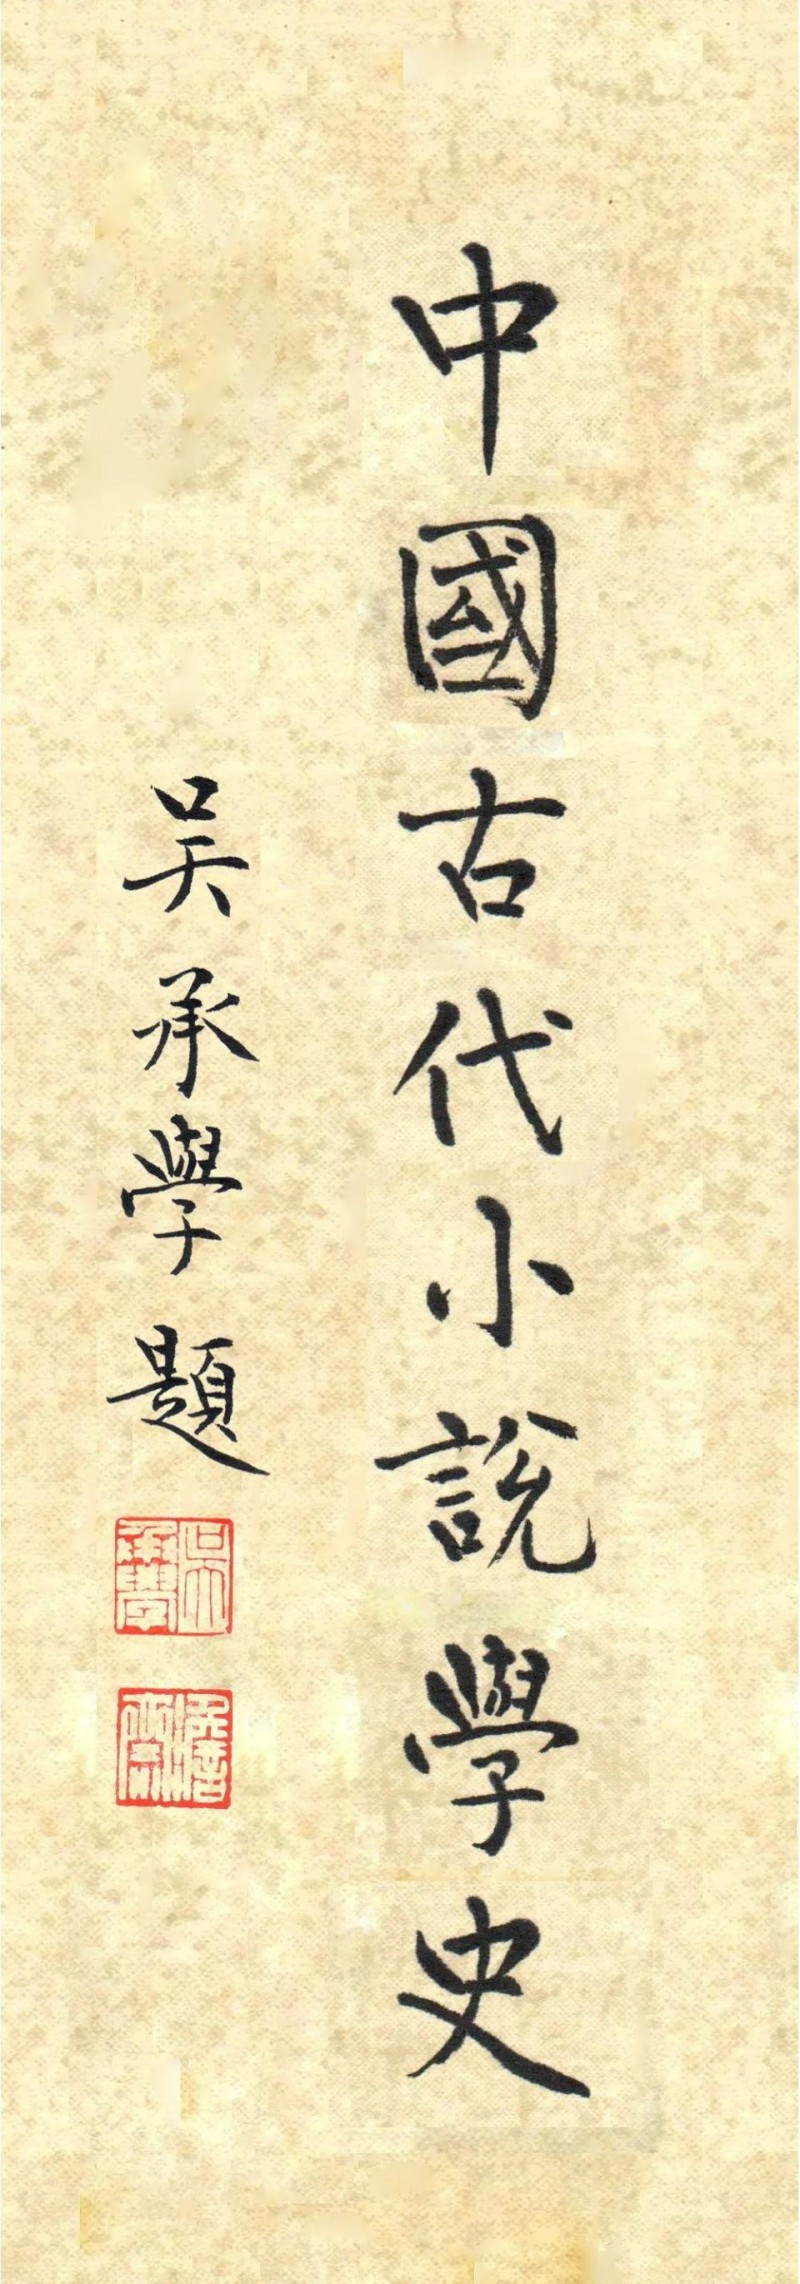 中國古代小說學史
吴承學題
吴承學